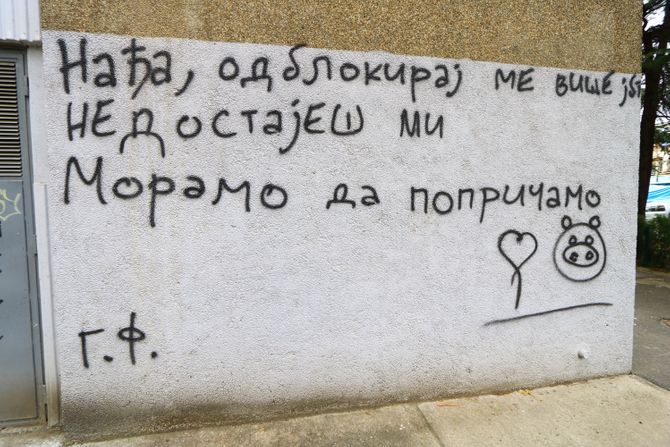 Нађа, одблокирај ме више јбт
недостајеш ми
Морамо да попричамо
Г.Ф.